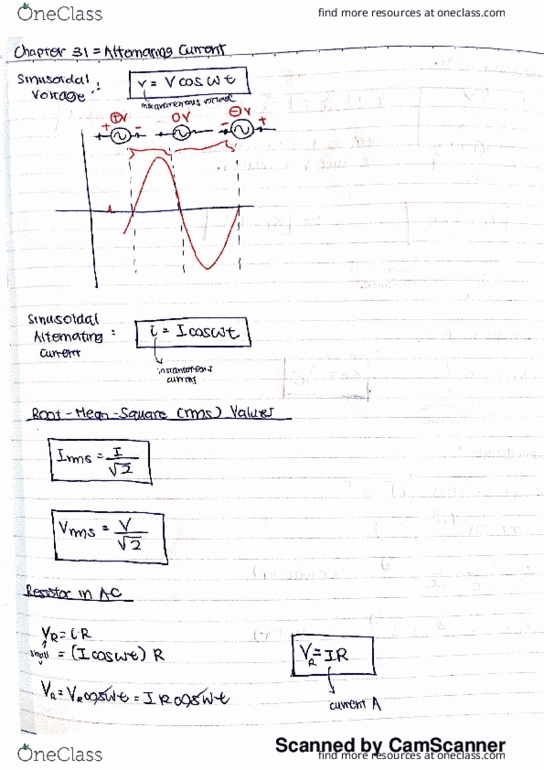 OneClass
find more resources at oneclass.com
Chapter 31 = Alternating Current
Sinusoidal
Voltage :
v = V cos ωt
instantaneous voltage
⊕V 0V ⊖V
+ - - +
Sinusoidal
Alternating :
Current
i = I cos ωt
instantaneous
current
Root-Mean-Square (rms) Values
Irms = I/√2
Vrms = V/√2
Resistor in AC
VR = i R
small
= (I cos ωt) R
VR = IR
VR = VR cos ωt = I R cos ωt
current A
Scanned by CamScanner
OneClass
find more resources at oneclass.com